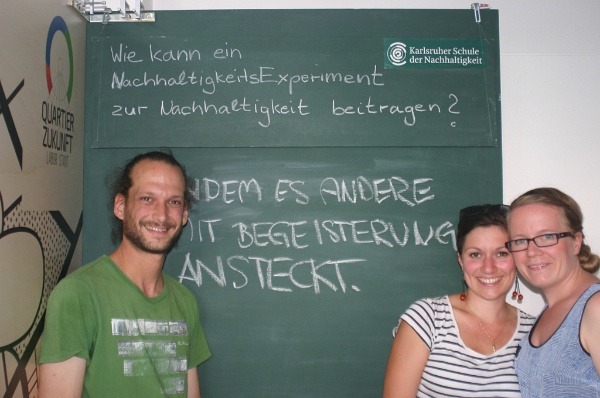 Wie kann ein
NachhaltigkeitsExperiment
zur Nachhaltigkeit beitragen?
Karlsruher Schule
der Nachhaltigkeit
QUARTIER
ZUKUNFT
LABOR STADT
NDEM ES ANDERE
IT BEGEISTERUNG
ANSTECKT.